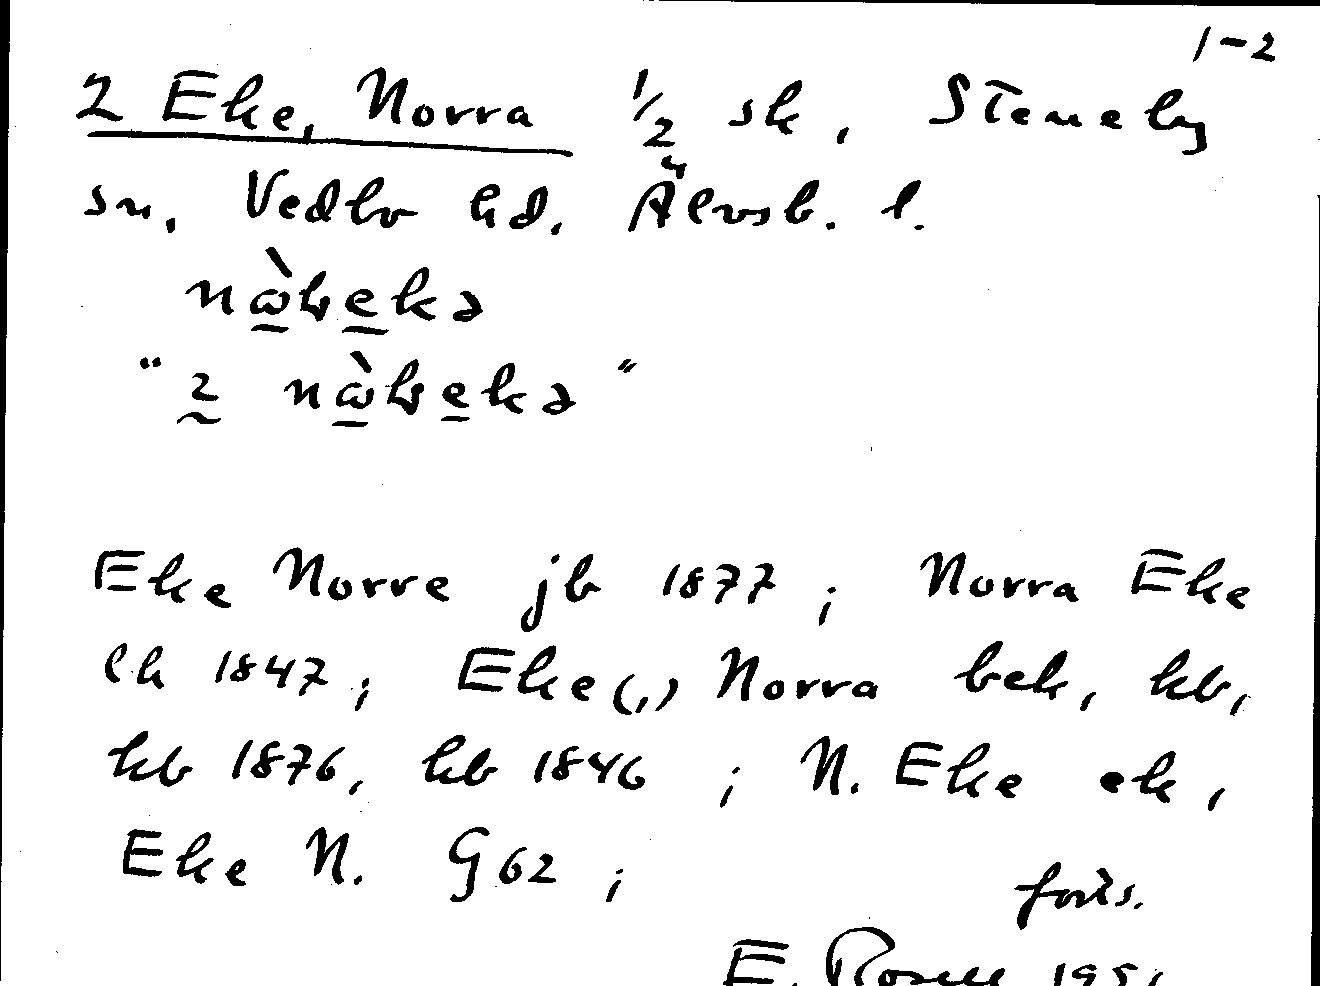 1-2
2 Eke, Norra ½ sk, Steneby
sn, Vedbo hd. Älvsb. l.
nὼbekə
"2 nὼbekə"
Eke Norre jb 1877; Norra Eke
lh 1847; Eke(,) Norra bek, kb,
kb 1876, hb 1846; N. Eke ek,
Eke N. G62;
forts.
E. Rosell